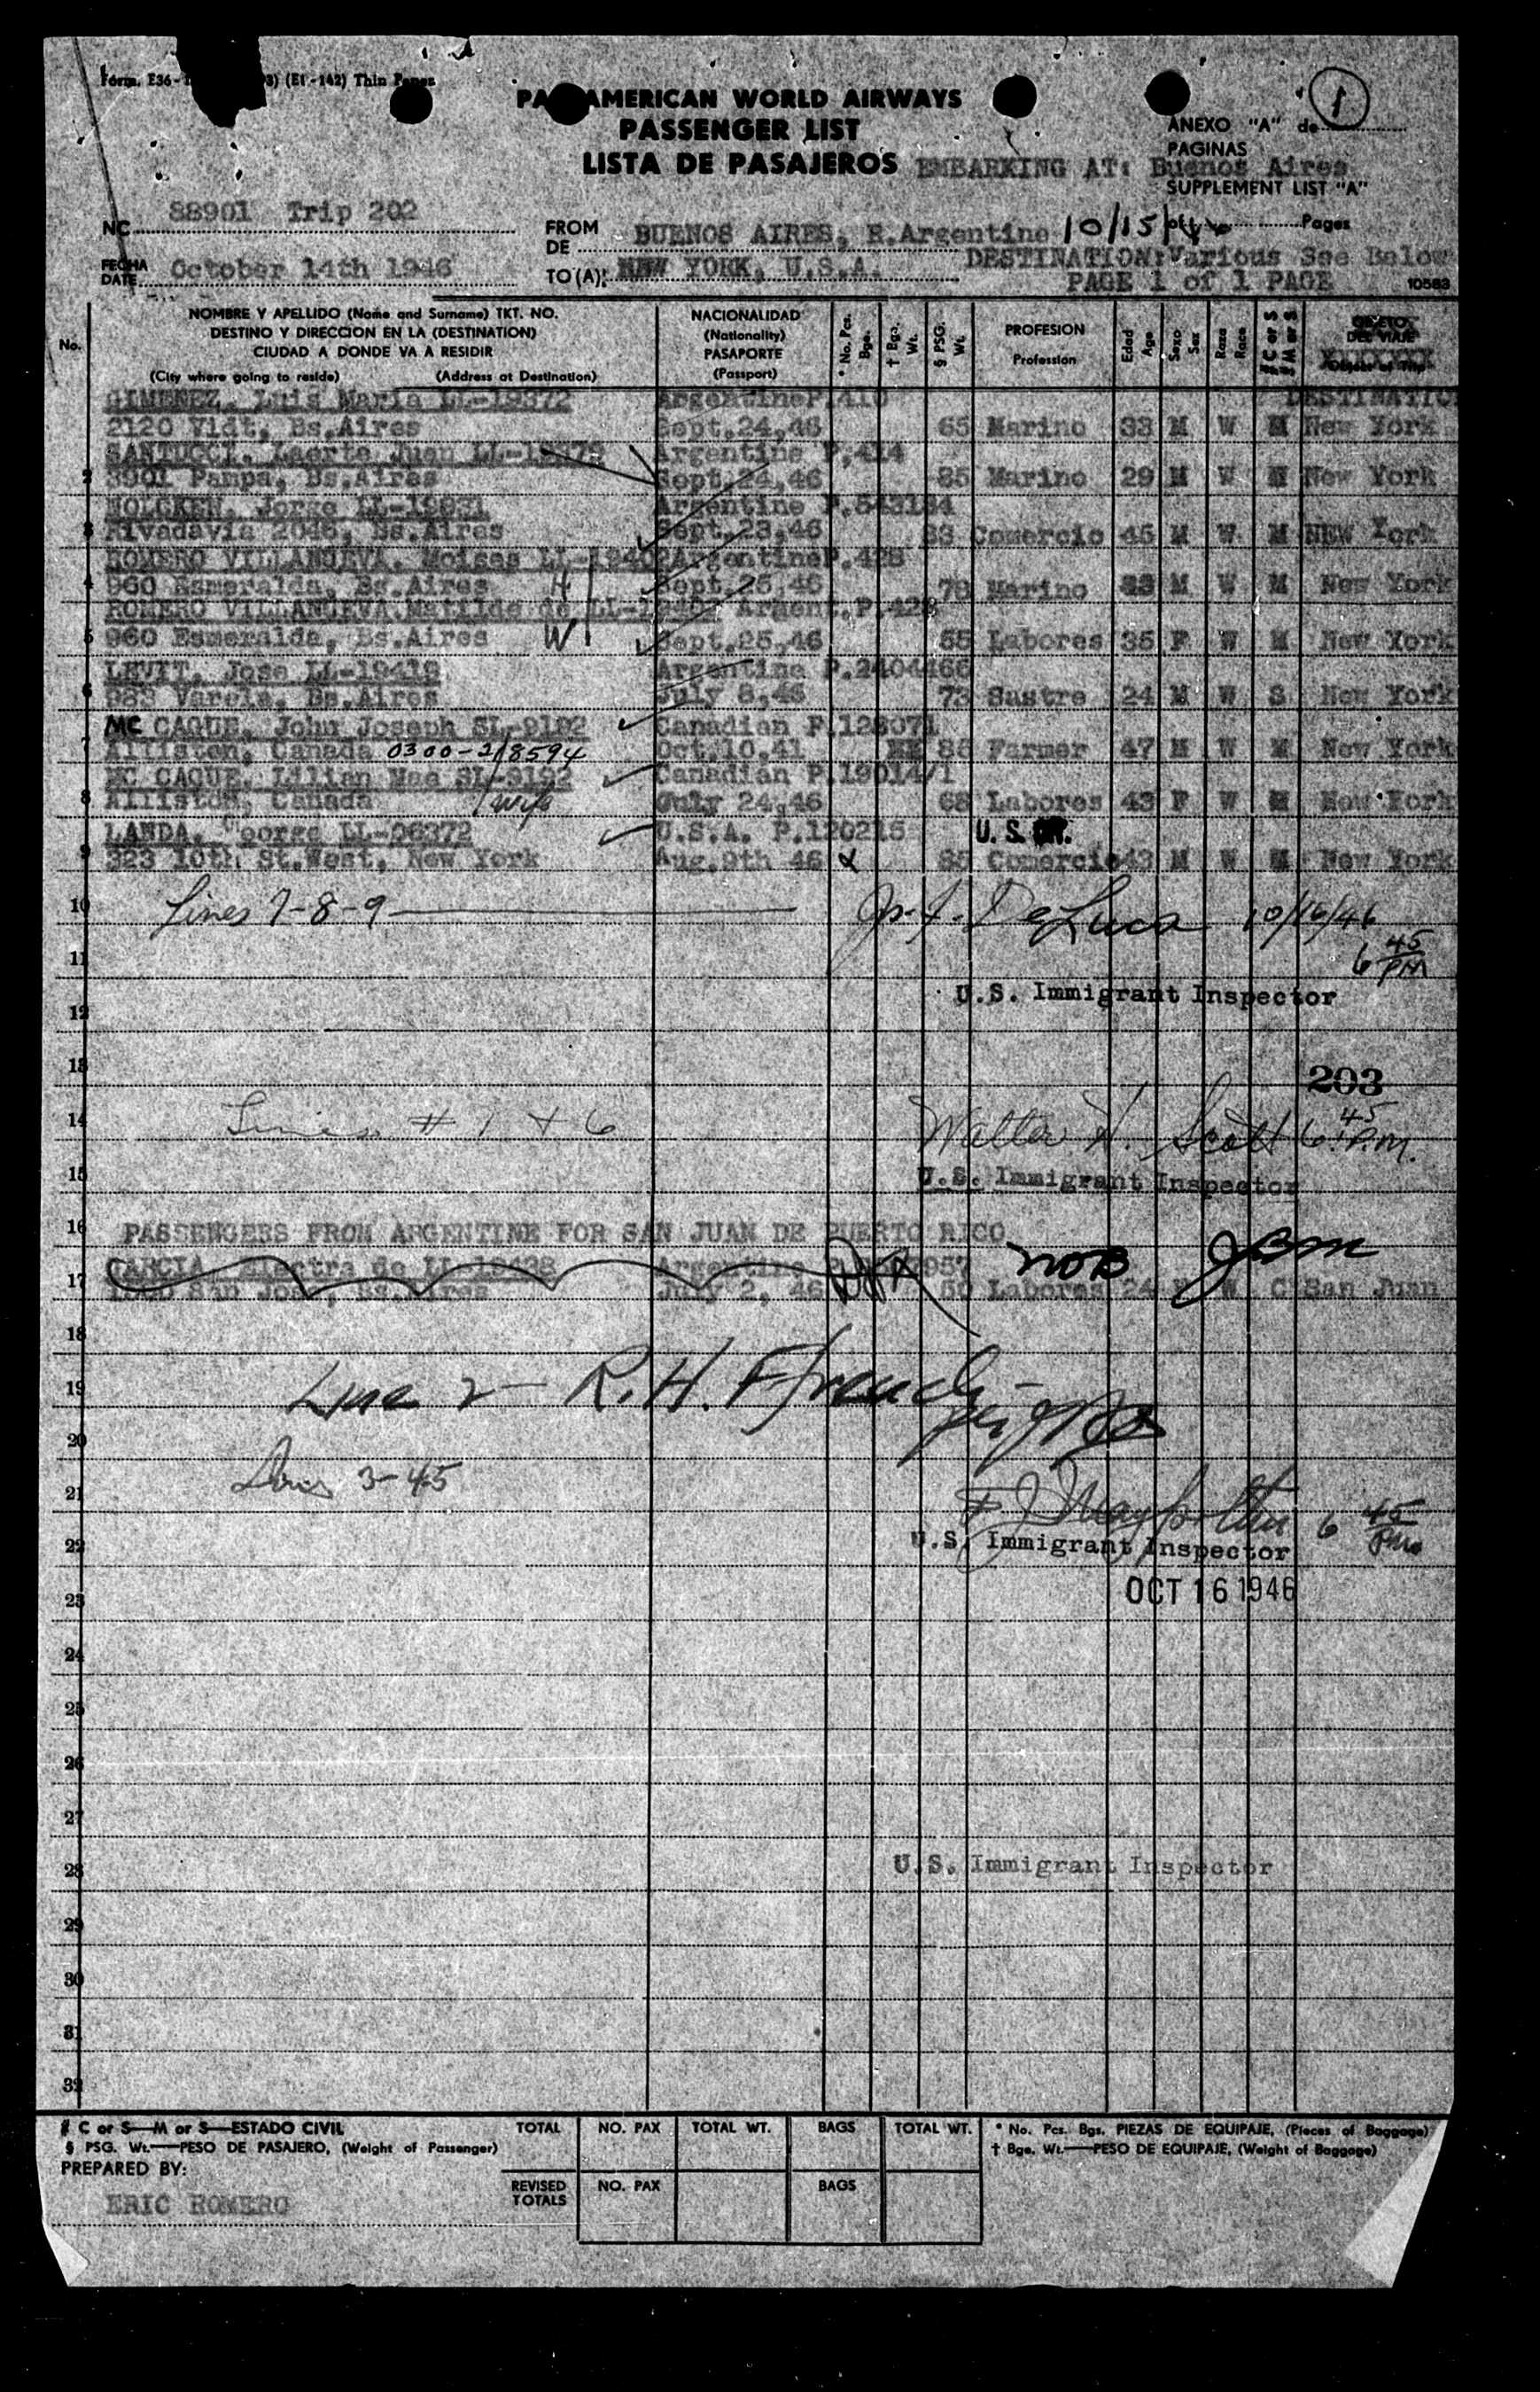 Form. E36- (E1-142) Thin Paper
PAN AMERICAN WORLD AIRWAYS
PASSENGER LIST
LISTA DE PASAJEROS
1
ANEXO "A" de
PAGINAS
EMBARKING AT: Buenos Aires
SUPPLEMENT LIST "A"
NC 88901 Trip 202
FROM DE BUENOS AIRES, R.Argentine 10/15/46 Pages
FECHA DATE October 14th 1946
TO (A): NEW YORK, U.S.A. DESTINATION:Various See Below
PAGE 1 of 1 PAGE 10583
No.
NOMBRE Y APELLIDO (Name and Surname) TKT. NO.
DESTINO Y DIRECCION EN LA (DESTINATION)
CIUDAD A DONDE VA A RESIDIR
(City where going to reside) (Address at Destination)
NACIONALIDAD
(Nationality)
PASAPORTE
(Passport)
* No. Pcs. Bgs.
† Bgs. Wt.
§ PSG. Wt.
PROFESION
Profession
Edad Age
Sexo Sex
Raza Race
C or S M or S
OBJETO DEL VIAJE
XXXXXXX
GIMENEZ, Luis Maria LL-19372 Argentine P.410 DESTINATIO
2120 Vidt, Bs.Aires Sept.24,46 65 Marino 33 M W M New York
SANTUCCI, Laerte Juan LL-19373 Argentine P.414
2 3901 Pampa, Bs.Aires Sept.24,46 85 Marino 29 M W M New York
Jorge Argentine P.543184
3 Rivadavia 2046, Bs.Aires Sept.23,46 83 Comercio 45 M W M NEW York
ROMERO VILLANUEVA, Moises LL-19402 Argentine P.428
4 960 Esmeralda, Bs.Aires H Sept.25,46 79 Marino M W M New York
ROMERO VILLANUEVA.Matilde de LL-19402 Argent.P.428
5 960 Esmeralda, Bs.Aires W Sept.25,46 55 Labores 35 F W M New York
LEVIT, Jose LL-19419 Argentine P.2404466
6 983 Varela, Bs.Aires July 8,46 73 Sastre 24 M W S New York
MC CAQUE, John Joseph SL-9192 Canadian P.128071
7 Alliston, Canada 0300-218594 Oct.10,41 86 Farmer 47 M W M New York
MC CAQUE, Lilian Mae SL-9192 Canadian P.19014/1
8 Alliston, Canada wife July 24,46 68 Labores 43 F W M New York
LANDA, George LL-06372 U.S.A. P.120215 U. S.
9 323 10th St.West, New York Aug.9th 46 x 85 Comercio 43 M W M New York
10 Lines 7-8-9 De Luca 10/16/46
11 6 45 PM
U.S. Immigrant Inspector
12
13 203
14 Lines # 1 + 6 Walter H. Scott 6 45 P.M.
15 U.S. Immigrant Inspector
16 PASSENGERS FROM ARGENTINE FOR SAN JUAN DE PUERTO RICO
GARCIA, Electra de LL-19428 Argentine NOB JBM
17 San Jose, Bs.Aires July 2, 46 50 Labores 24 F W C San Juan
18
19 Line 2 - R.H.
20
21 Lines 3-4-5 6 45 PM
22 U.S. Immigrant Inspector
23 OCT 16 1946
24
25
26
27
28 U.S. Immigrant Inspector
29
30
31
32
# C or S—M or S—ESTADO CIVIL
§ PSG. Wt.—PESO DE PASAJERO, (Weight of Passenger)
PREPARED BY:
ERIC ROMERO
TOTAL NO. PAX TOTAL WT. BAGS TOTAL WT.
REVISED TOTALS NO. PAX BAGS
* No. Pcs. Bgs. PIEZAS DE EQUIPAJE, (Pieces of Baggage)
† Bgs. Wt.—PESO DE EQUIPAJE, (Weight of Baggage)